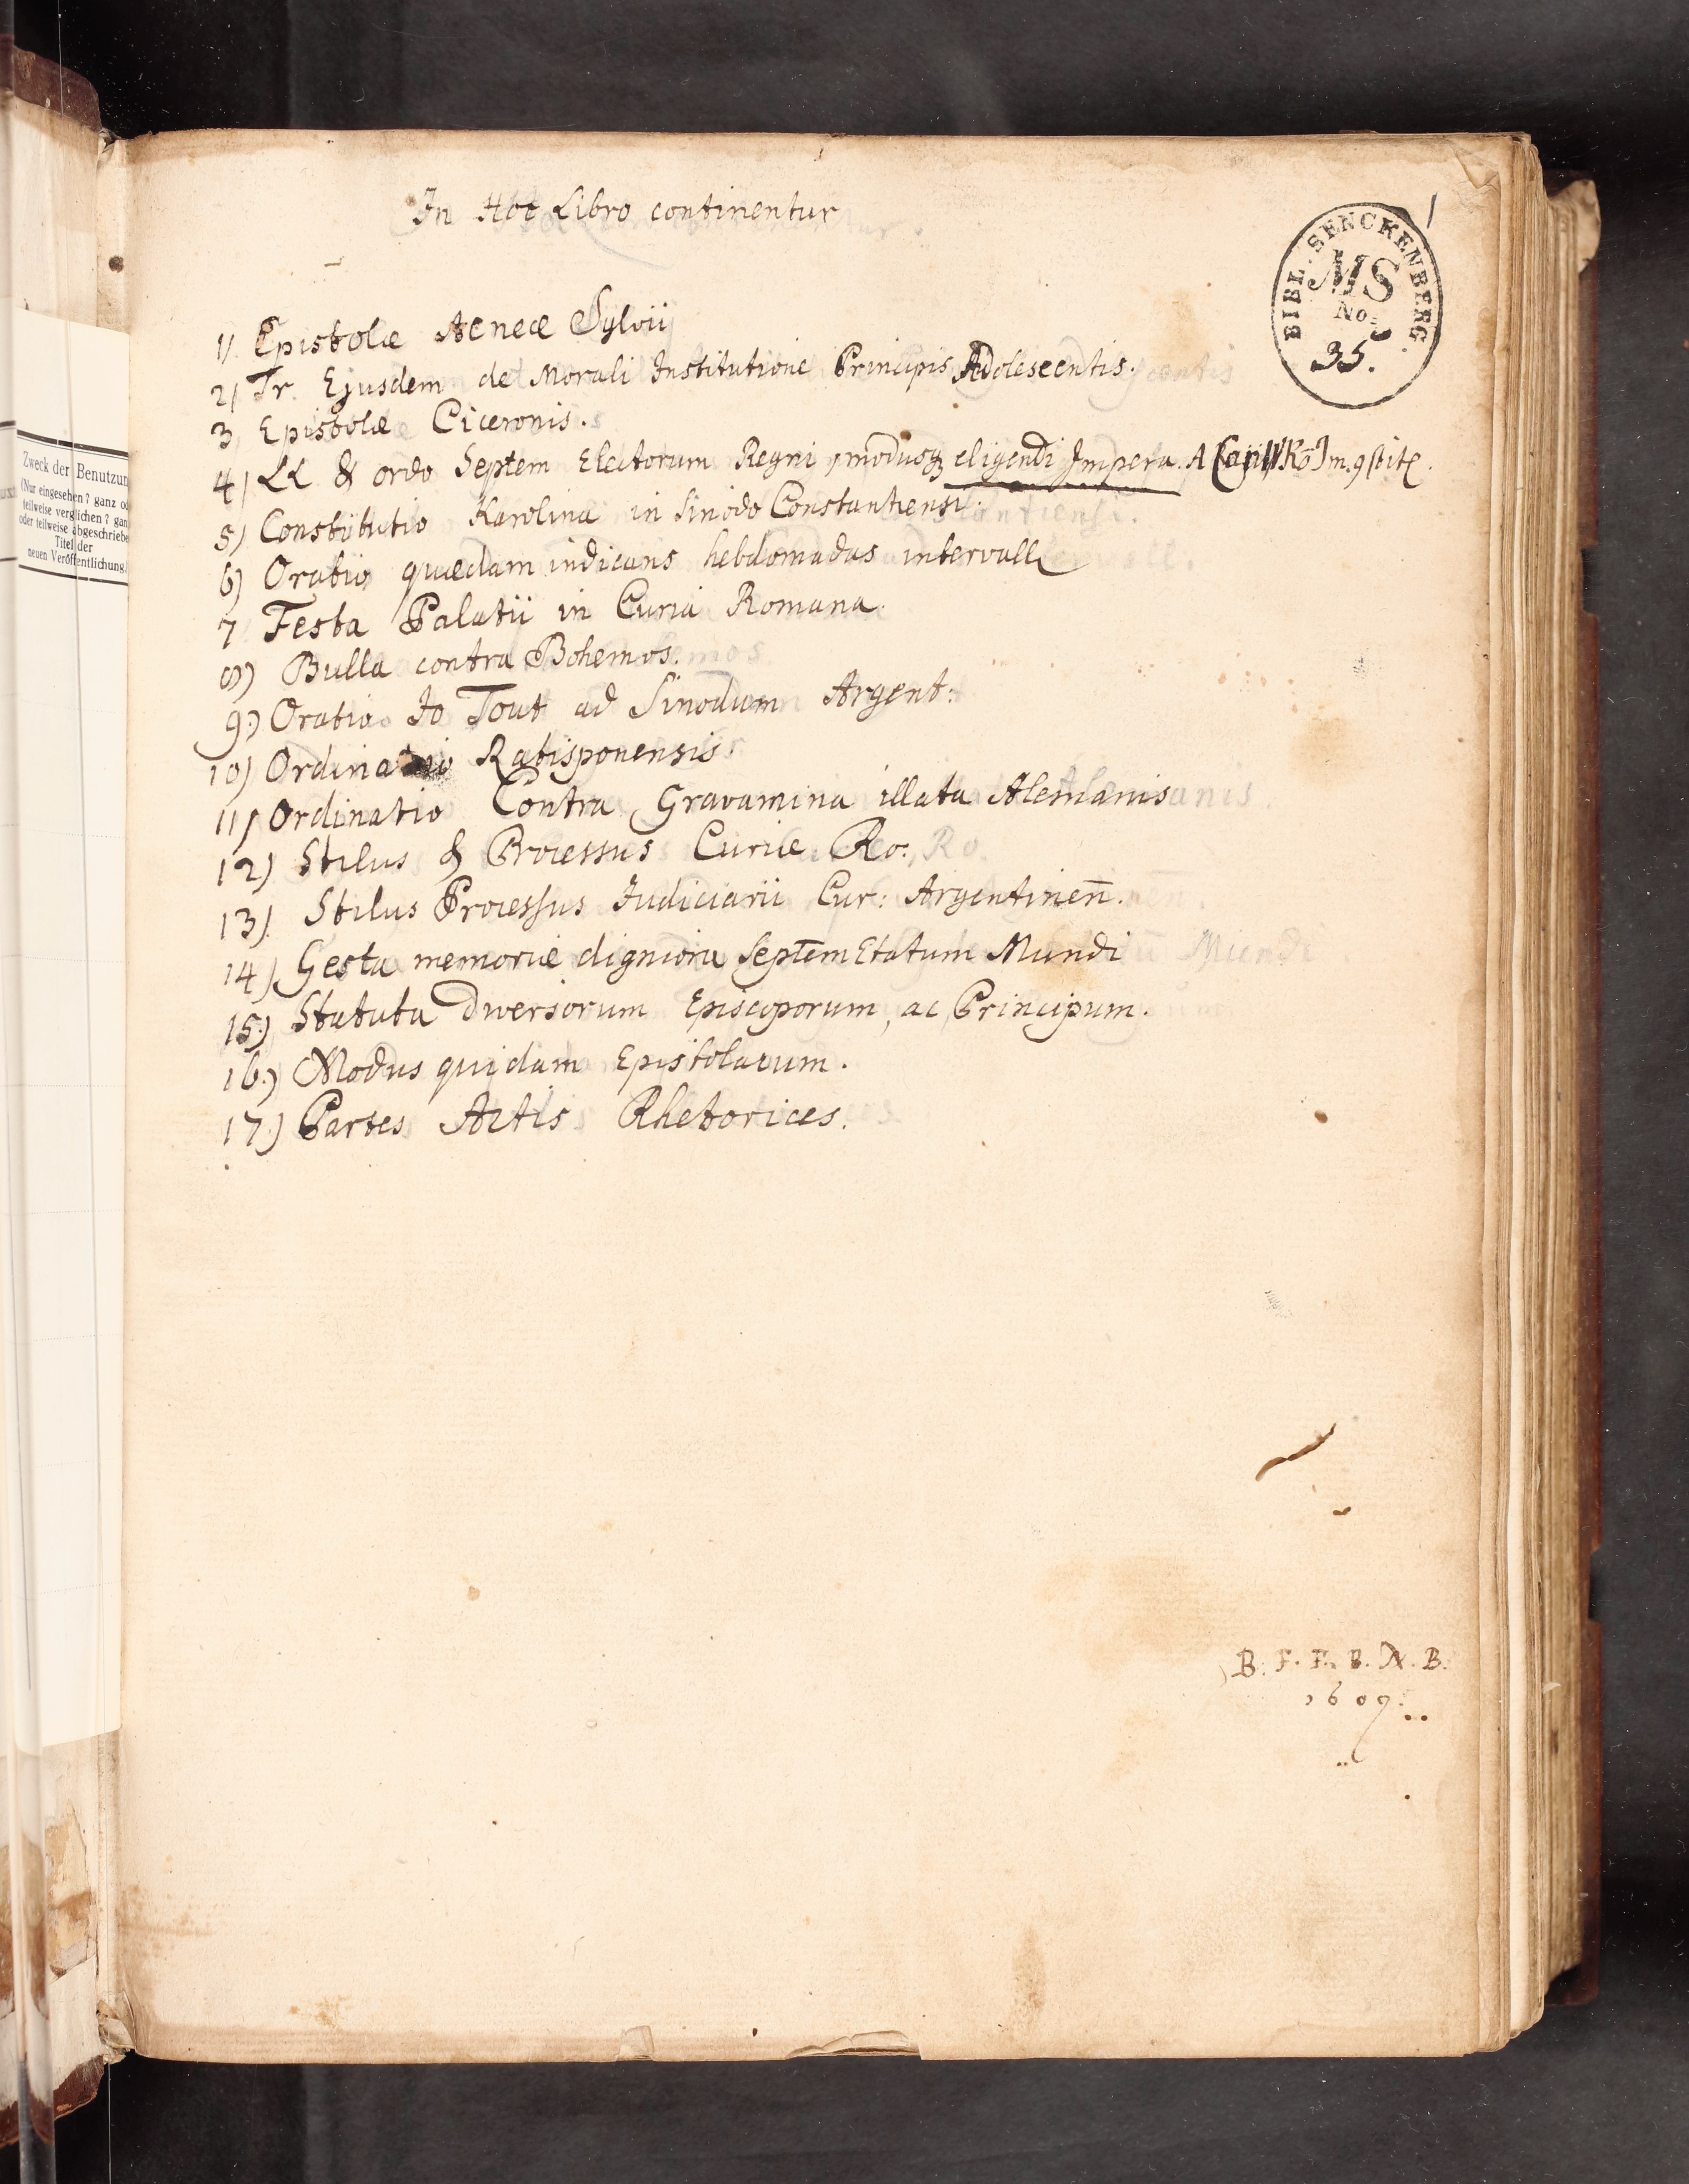 In Hoc Libro continentur
1
BIBL. SENCKENBERG.
MS
No.
35.
1) Epistolæ Aeneæ Sylvii
2) Tr. Ejusdem de Morali Institutione Principis Adolescentis.
3 Epistolæ Ciceronis.
4) LL & ordo Septem Electorum Regni, modusq eligendi Impera. A
5) Constitutio Karolina in Sinodo Constantiensi.
6) Oratio quædam indicans hebdomadas intervall
7 Festa Palatii in Curia Romana.
8) Bulla contra Bohemos.
9.) Oratio Jo Tout ad Sinodum Argent:
10) Ordinatio Ratisponensis
11) Ordinatio Contra Gravamina illata Alemanis
12) Stilus & Processus Curiæ Ro.
13). Stilus Processus Judiciarii Cur: Argentineñ.
14) Gesta memoriæ digniora Septem Etatum Mundi
15.) Statuta diversorum Episcoporum, ac Principum.
16.) Modus quidam Epistolarum.
17.) Partes Artis Rhetorices.
B. F. F. B. N. B.
1609.
Zweck der Benutzun
(Nur eingesehen? ganz od
teilweise verglichen? gan
oder teilweise abgeschriebe
Titel der
neuen Veröffentlichung.